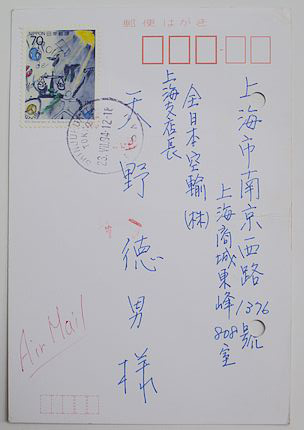 郵便はがき
NIPPON 日本郵便
70
上海市南京西路1376號
上海商城東峰808室
全日本空輸(株)
上海支店長
天野徳男様
TOKYO
23.VIII.94.12-18
Air Mail